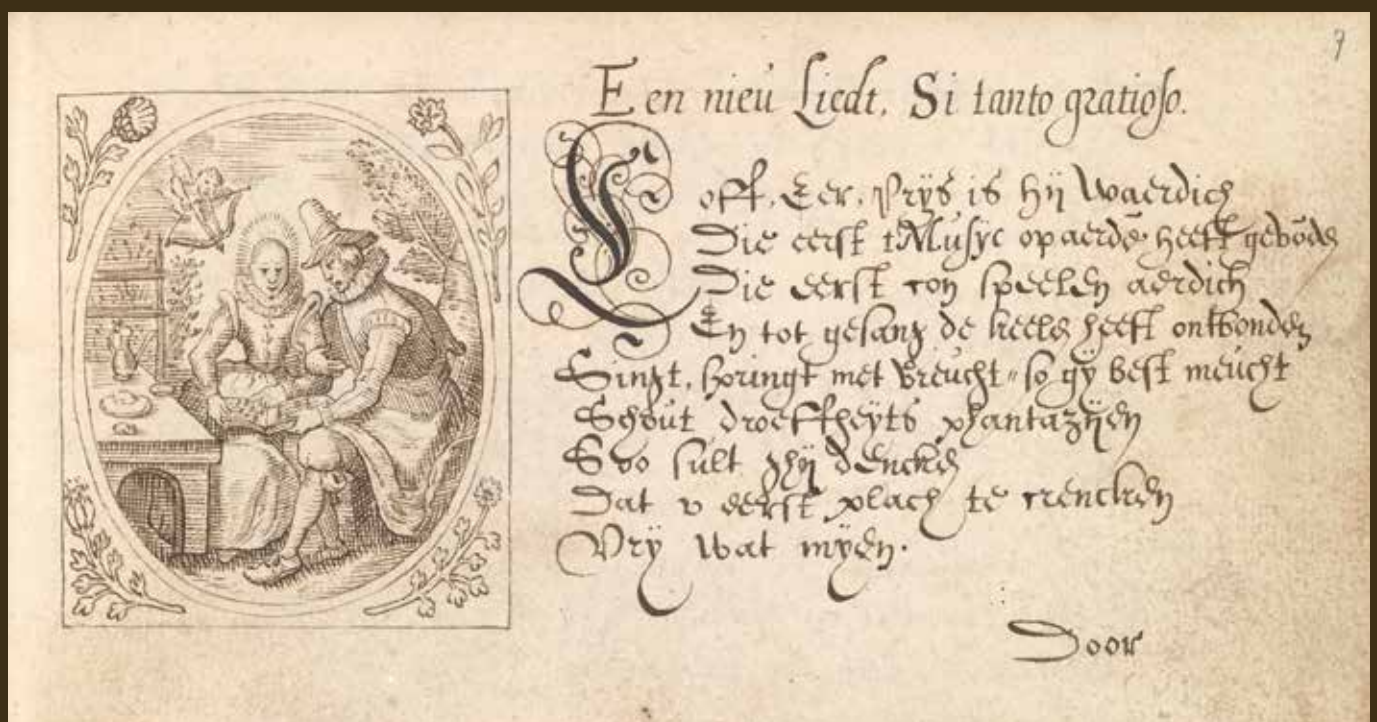 7
Een nieu Liedt. Si tanto gratioso.
Loff, Eer, Prijs is hij waerdich
Die eerst tMusyc op aerdē heeft gevōdē
Die eerst con speelen aerdich
En tot gesang de keele heeft ontbonden
Singt, springt met vreucht so gÿ best meucht
Schout droeffheyts phantazijen
Soo sult ghij dencken
Dat u eerst plach te crencken
Vry wat myden.
Door